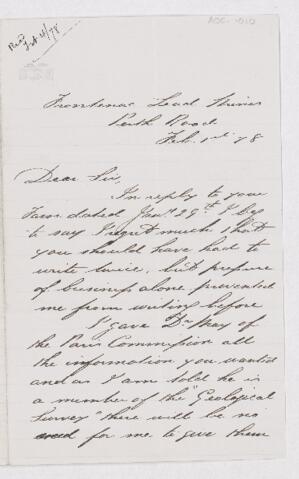 Recd Feb 4/78
AOC-010
Frontenac Lead Mines
Perth Road
Feb. 1st 78
Dear Sir,
In reply to your
favor dated Jany 29th I beg
to say I regret much that
you should have had to
write twice, but pressure
of business alone prevented
me from writing before
I gave Dr May of
the Paris Commission all
the information you wanted
and as I am told he is
a member of the "Geological
Survey" there will be no
need for me to give them